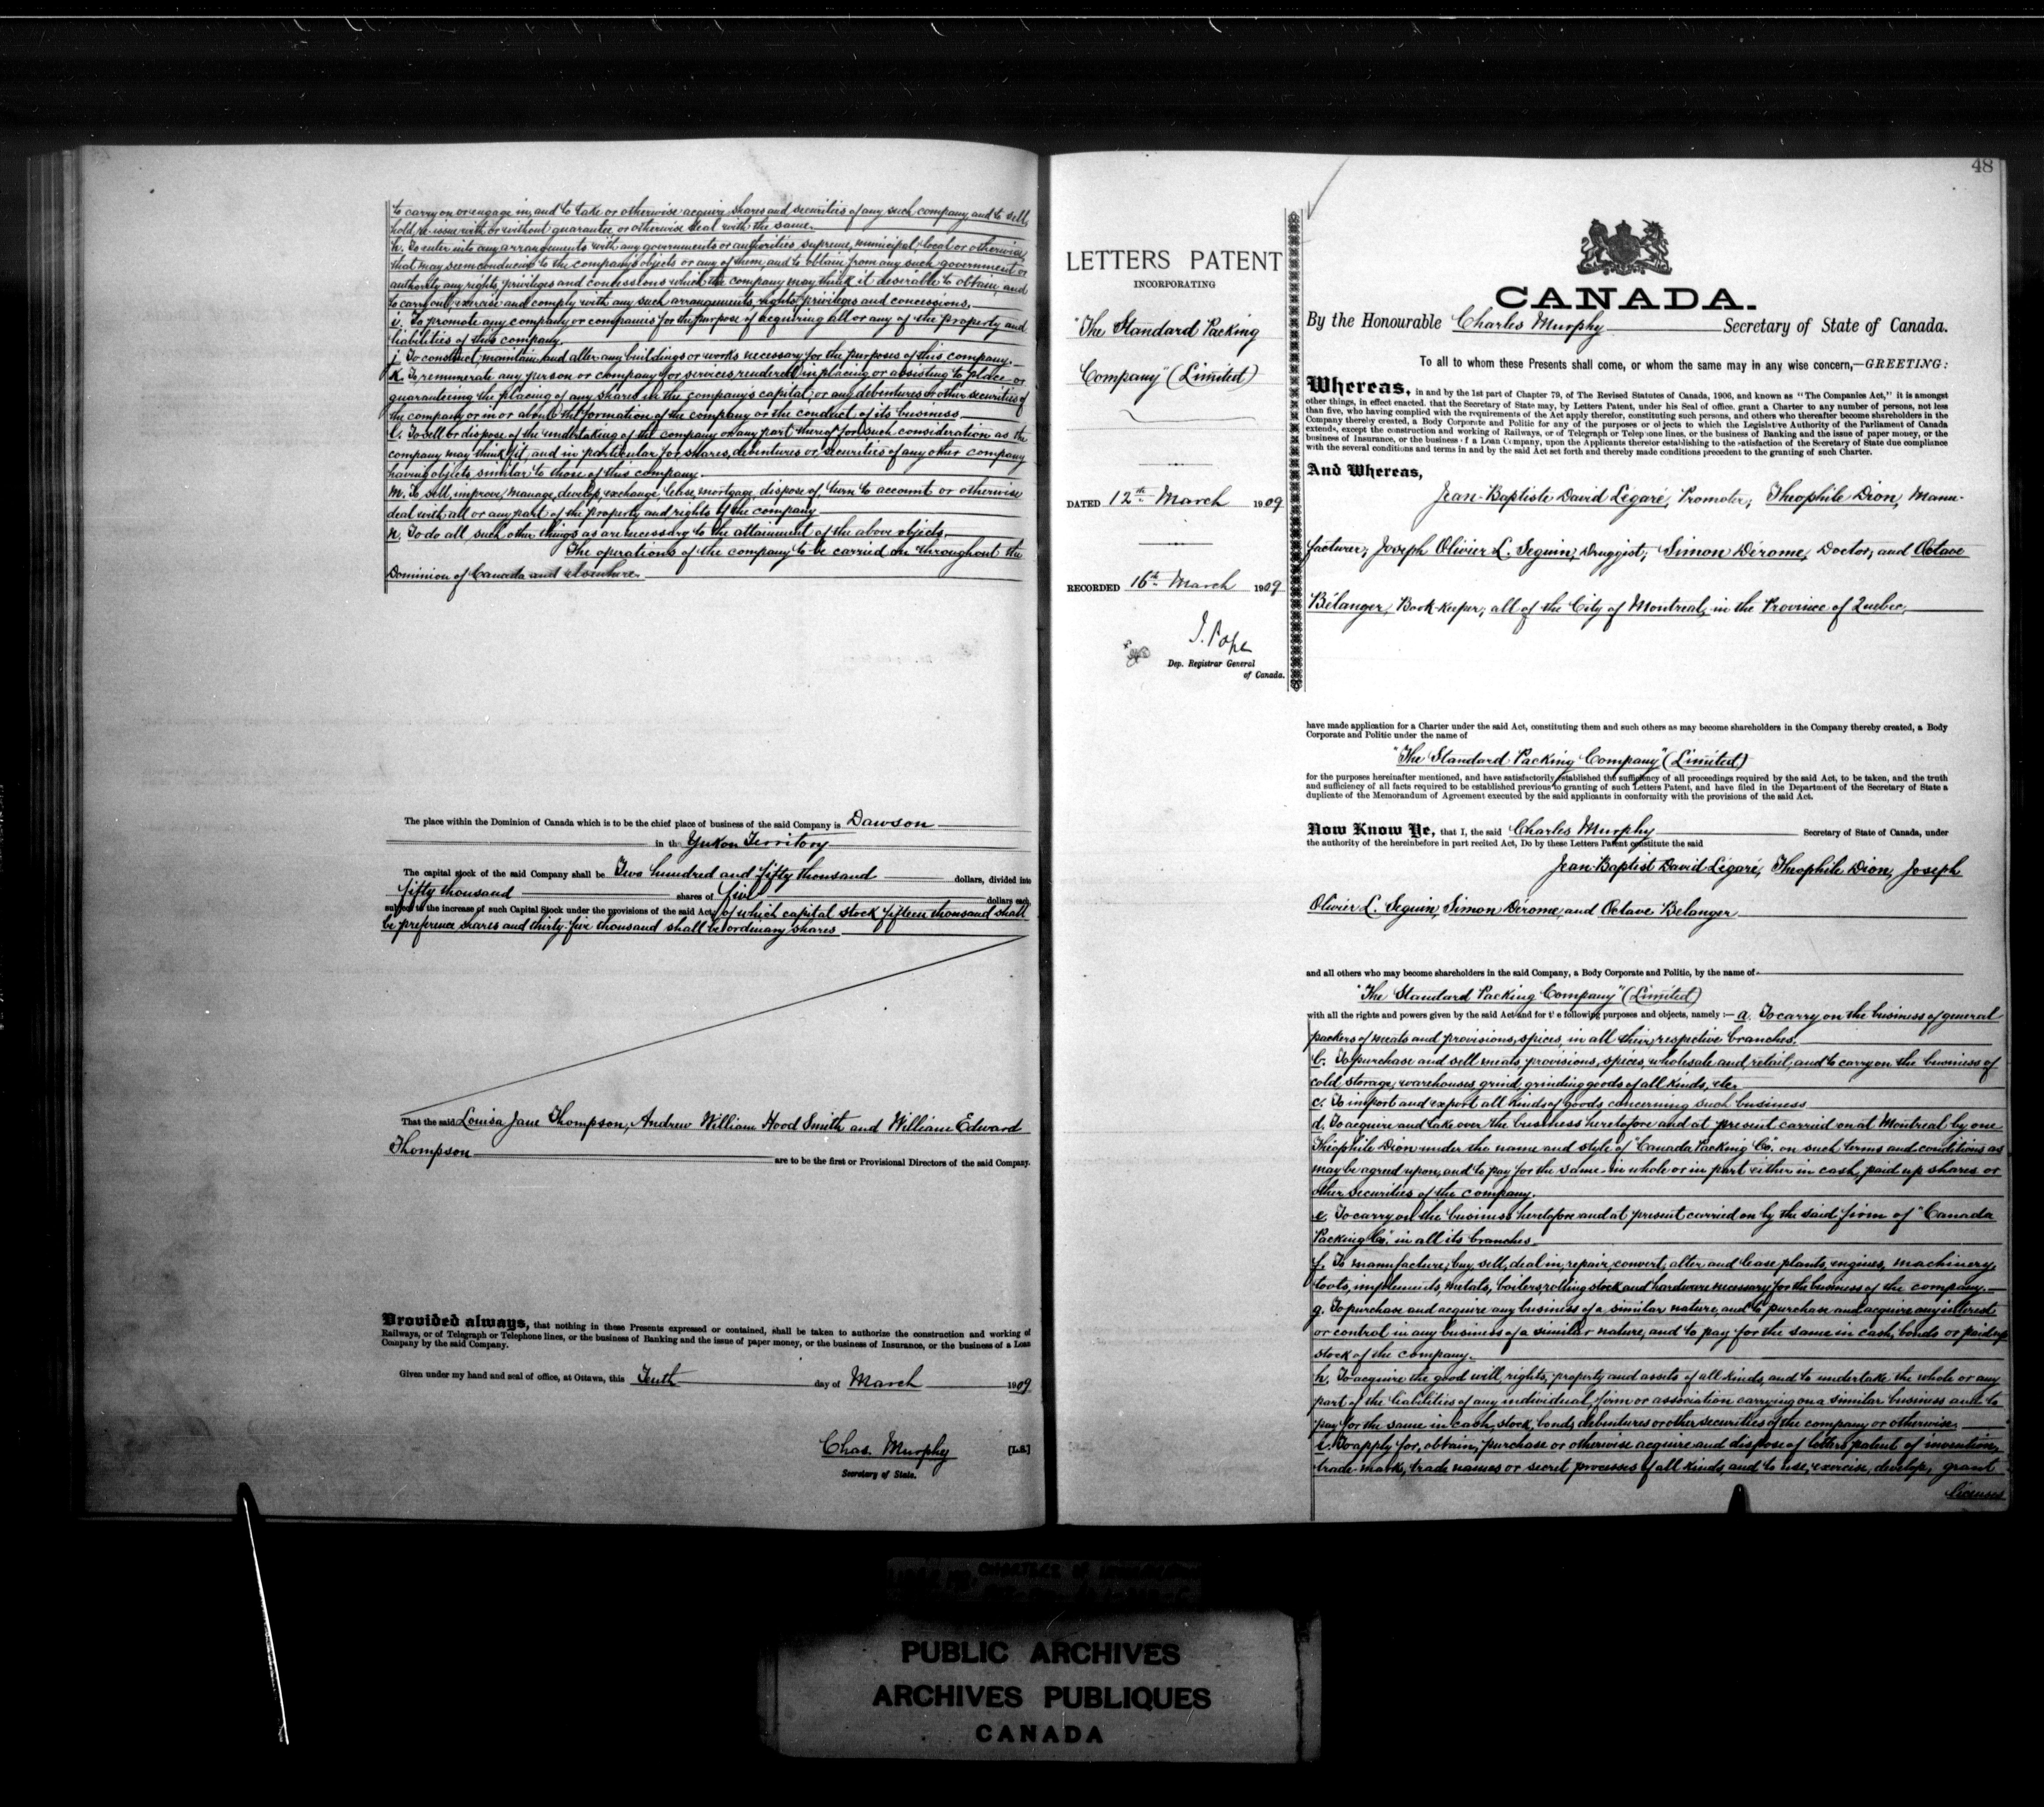 to carry on or engage in, and to take or otherwise acquire shares and securities of any such company and to sell,
hold, re-issue with or without guarantee, or otherwise deal with the same.
h. To enter into any arrangements with any governments or authorities supreme, municipal, local or otherwise,
that may seem conducive to the company's objects or any of them, and to obtain from any such government or
authority any rights, privileges and concessions which the company may think it desirable to obtain, and
to carry out, exercise and comply with any such arrangements, rights, privileges and concessions.
i. To promote any company or companies for the purpose of acquiring all or any of the property and
liabilities of this company.
j. To construct, maintain and alter any buildings or works necessary for the purposes of this company.
k. To remunerate any person or company for services rendered in placing or assisting to place or
guaranteeing the placing of any shares in the company's capital, or any debentures or other securities of
the company or in or about the formation of the company or the conduct of its business
l. To sell or dispose of the undertaking of the company or any part thereof for such consideration as the
company may think fit, and in particular for shares, debentures or securities of any other company
having objects similar to those of this company.
m. To sell, improve, manage, develop, exchange, lease, mortgage, dispose of, turn to account or otherwise
deal with all or any part of the property and rights of the company
n. To do all such other things as are necessary to the attainment of the above objects.
The operations of the company to be carried on throughout the
Dominion of Canada and elsewhere.
The place within the Dominion of Canada which is to be the chief place of business of the said Company is Dawson
in the Yukon Territory
The capital stock of the said Company shall be Two hundred and fifty thousand dollars, divided into
fifty thousand shares of five dollars each,
subject to the increase of such Capital Stock under the provisions of the said Act, of which capital stock fifteen thousand shall
be preference shares and thirty-five thousand shall be ordinary shares
That the said Louisa Jane Thompson, Andrew William Hood Smith and William Edward
Thompson are to be the first or Provisional Directors of the said Company.
Provided always, that nothing in these Presents expressed or contained, shall be taken to authorize the construction and working of
Railways, or of Telegraph or Telephone lines, or the business of Banking and the issue of paper money, or the business of Insurance, or the business of a Loan
Company by the said Company.
Given under my hand and seal of office, at Ottawa, this Tenth day of March 1909
Chas. Murphy [L.S.]
Secretary of State.
48
LETTERS PATENT
INCORPORATING
"The Standard Packing
Company" (Limited)
DATED 12th March 1909
RECORDED 16th March 1909
J. Pope
Dep. Registrar General
of Canada.
CANADA.
By the Honourable Charles Murphy Secretary of State of Canada.
To all to whom these Presents shall come, or whom the same may in any wise concern,—GREETING:
Whereas, in and by the 1st part of Chapter 79, of The Revised Statutes of Canada, 1906, and known as "The Companies Act," it is amongst
other things, in effect enacted, that the Secretary of State may, by Letters Patent, under his Seal of office, grant a Charter to any number of persons, not less
than five, who having complied with the requirements of the Act apply therefor, constituting such persons, and others who thereafter become shareholders in the
Company thereby created, a Body Corporate and Politic for any of the purposes or objects to which the Legislative Authority of the Parliament of Canada
extends, except the construction and working of Railways, or of Telegraph or Telephone lines, or the business of Banking and the issue of paper money, or the
business of Insurance, or the business of a Loan Company, upon the Applicants therefor establishing to the satisfaction of the Secretary of State due compliance
with the several conditions and terms in and by the said Act set forth and thereby made conditions precedent to the granting of such Charter.
And Whereas,
Jean-Baptiste David Légaré, Promoter; Theophile Dion, Manu-
facturer; Joseph Olivier L. Seguin, Druggist; Simon Dérome, Doctor, and Octave
Bélanger, Book-keeper; all of the City of Montreal, in the Province of Quebec,
have made application for a Charter under the said Act, constituting them and such others as may become shareholders in the Company thereby created, a Body
Corporate and Politic under the name of
"The Standard Packing Company" (Limited)
for the purposes hereinafter mentioned, and have satisfactorily established the sufficiency of all proceedings required by the said Act, to be taken, and the truth
and sufficiency of all facts required to be established previous to granting of such Letters Patent, and have filed in the Department of the Secretary of State a
duplicate of the Memorandum of Agreement executed by the said applicants in conformity with the provisions of the said Act.
Now Know Ye, that I, the said Charles Murphy Secretary of State of Canada, under
the authority of the hereinbefore in part recited Act, Do by these Letters Patent constitute the said
Jean-Baptist David Légaré, Theophile Dion, Joseph
Olivier L. Seguin, Simon Dérome, and Octave Belanger
and all others who may become shareholders in the said Company, a Body Corporate and Politic, by the name of
"The Standard Packing Company" (Limited)
with all the rights and powers given by the said Act and for the following purposes and objects, namely:— a. To carry on the business of general
packers of meats and provisions, spices, in all their respective branches.
b. To purchase and sell meats, provisions, spices, wholesale and retail, and to carry on the business of
cold storage, warehouses, grind, grinding goods of all kinds, etc.
c. To import and export all kinds of goods concerning such business
d. To acquire and take over the business heretofore and at present carried on at Montreal by one
Théophile Dion under the name and style of "Canada Packing Co." on such terms and conditions as
may be agreed upon, and to pay for the same in whole or in part either in cash, paid up shares or
other securities of the company.
e. To carry on the business heretofore and at present carried on by the said firm of "Canada
Packing Co." in all its branches.
f. To manufacture, buy, sell, deal in, repair, convert, alter and lease plants, engines, machinery,
tools, implements, metals, boilers, rolling stock and hardware necessary for the business of the company.
g. To purchase and acquire any business of a similar nature, and to purchase and acquire any interest
or control in any business of a similar nature, and to pay for the same in cash, bonds or paid up
stock of the company.
h. To acquire the good will, rights, property and assets of all kinds, and to undertake the whole or any
part of the liabilities of any individual, firm or association carrying on a similar business and to
pay for the same in cash, stock, bonds, debentures or other securities of the company or otherwise.
i. To apply for, obtain, purchase or otherwise acquire and dispose of letters patent of invention,
trade-marks, trade names or secret processes of all kinds, and to use, exercise, develop, grant
licenses
PUBLIC ARCHIVES
ARCHIVES PUBLIQUES
CANADA